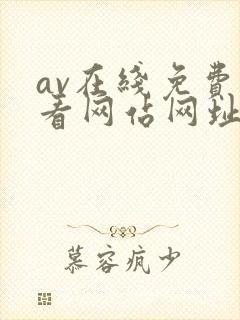 av在綫免費
看网佔网址
慕容疯少